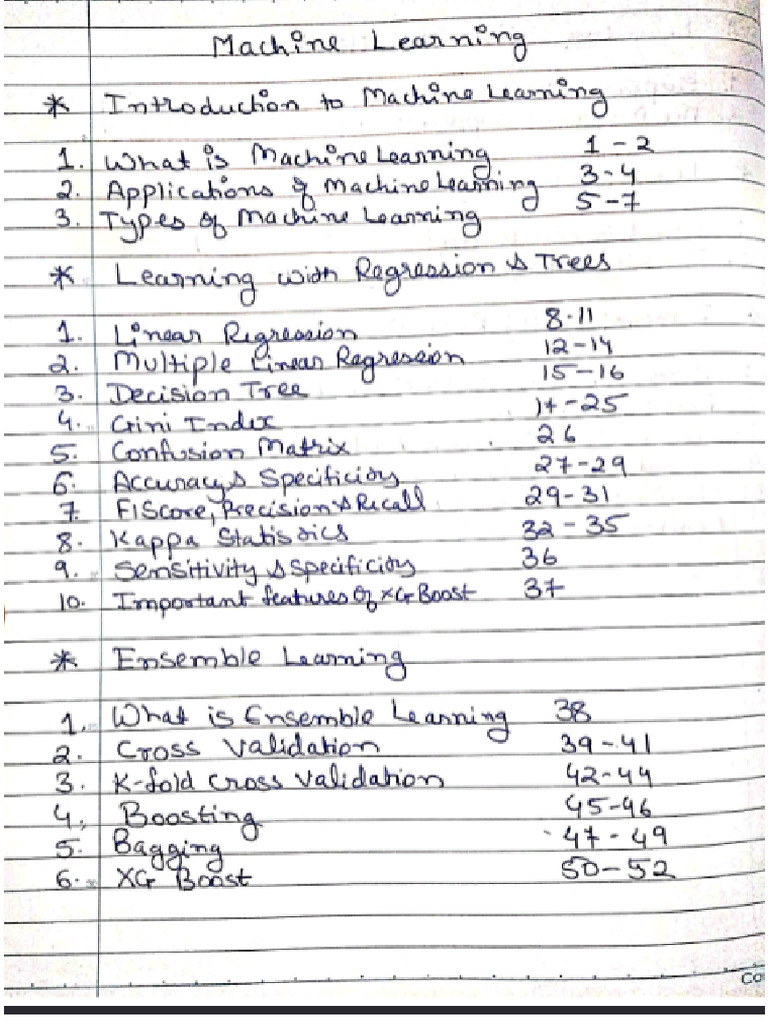 Machine Learning
* Introduction to Machine Learning
1. What is Machine Learning 1-2
2. Applications of Machine Learning 3-4
3. Types of Machine Learning 5-7
* Learning with Regression & Trees
1. Linear Regression 8-11
2. Multiple Linear Regression 12-14
3. Decision Tree 15-16
4. Gini Index 17-25
5. Confusion Matrix 26
6. Accuracy & Specificity 27-29
7. F1Score, Precision & Recall 29-31
8. Kappa Statistics 32-35
9. Sensitivity & Specificity 36
10. Important features of XG Boost 37
* Ensemble Learning
1. What is Ensemble Learning 38
2. Cross Validation 39-41
3. K-fold cross validation 42-44
4. Boosting 45-46
5. Bagging 47-49
6. XG Boost 50-52